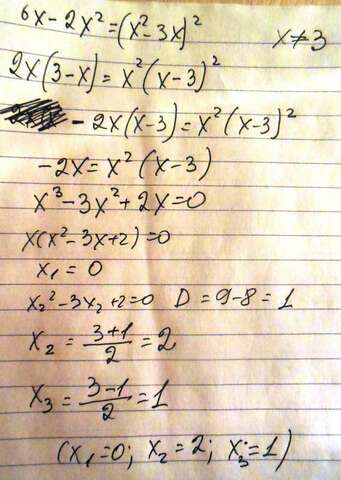 6x-2x²=(x²-3x)² x≠3
2x(3-x)=x²(x-3)²
-2x(x-3)=x²(x-3)²
-2x=x²(x-3)
x³-3x²+2x=0
x(x²-3x+2)=0
x₁=0
x₂²-3x₂+2=0 D=9-8=1
x₂=(3+1)/2=2
x₃=(3-1)/2=1
(x₁=0; x₂=2; x₃=1)